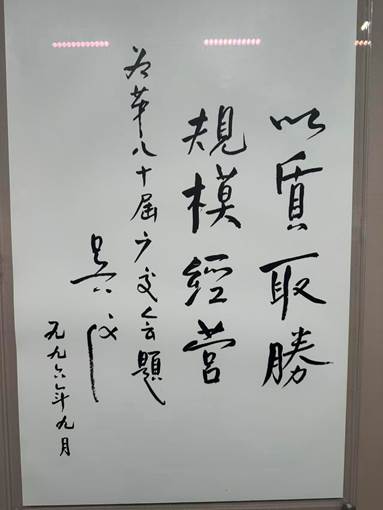 以質取勝
規模經营
为第八十届广交会題
吴仪
一九九六年九月